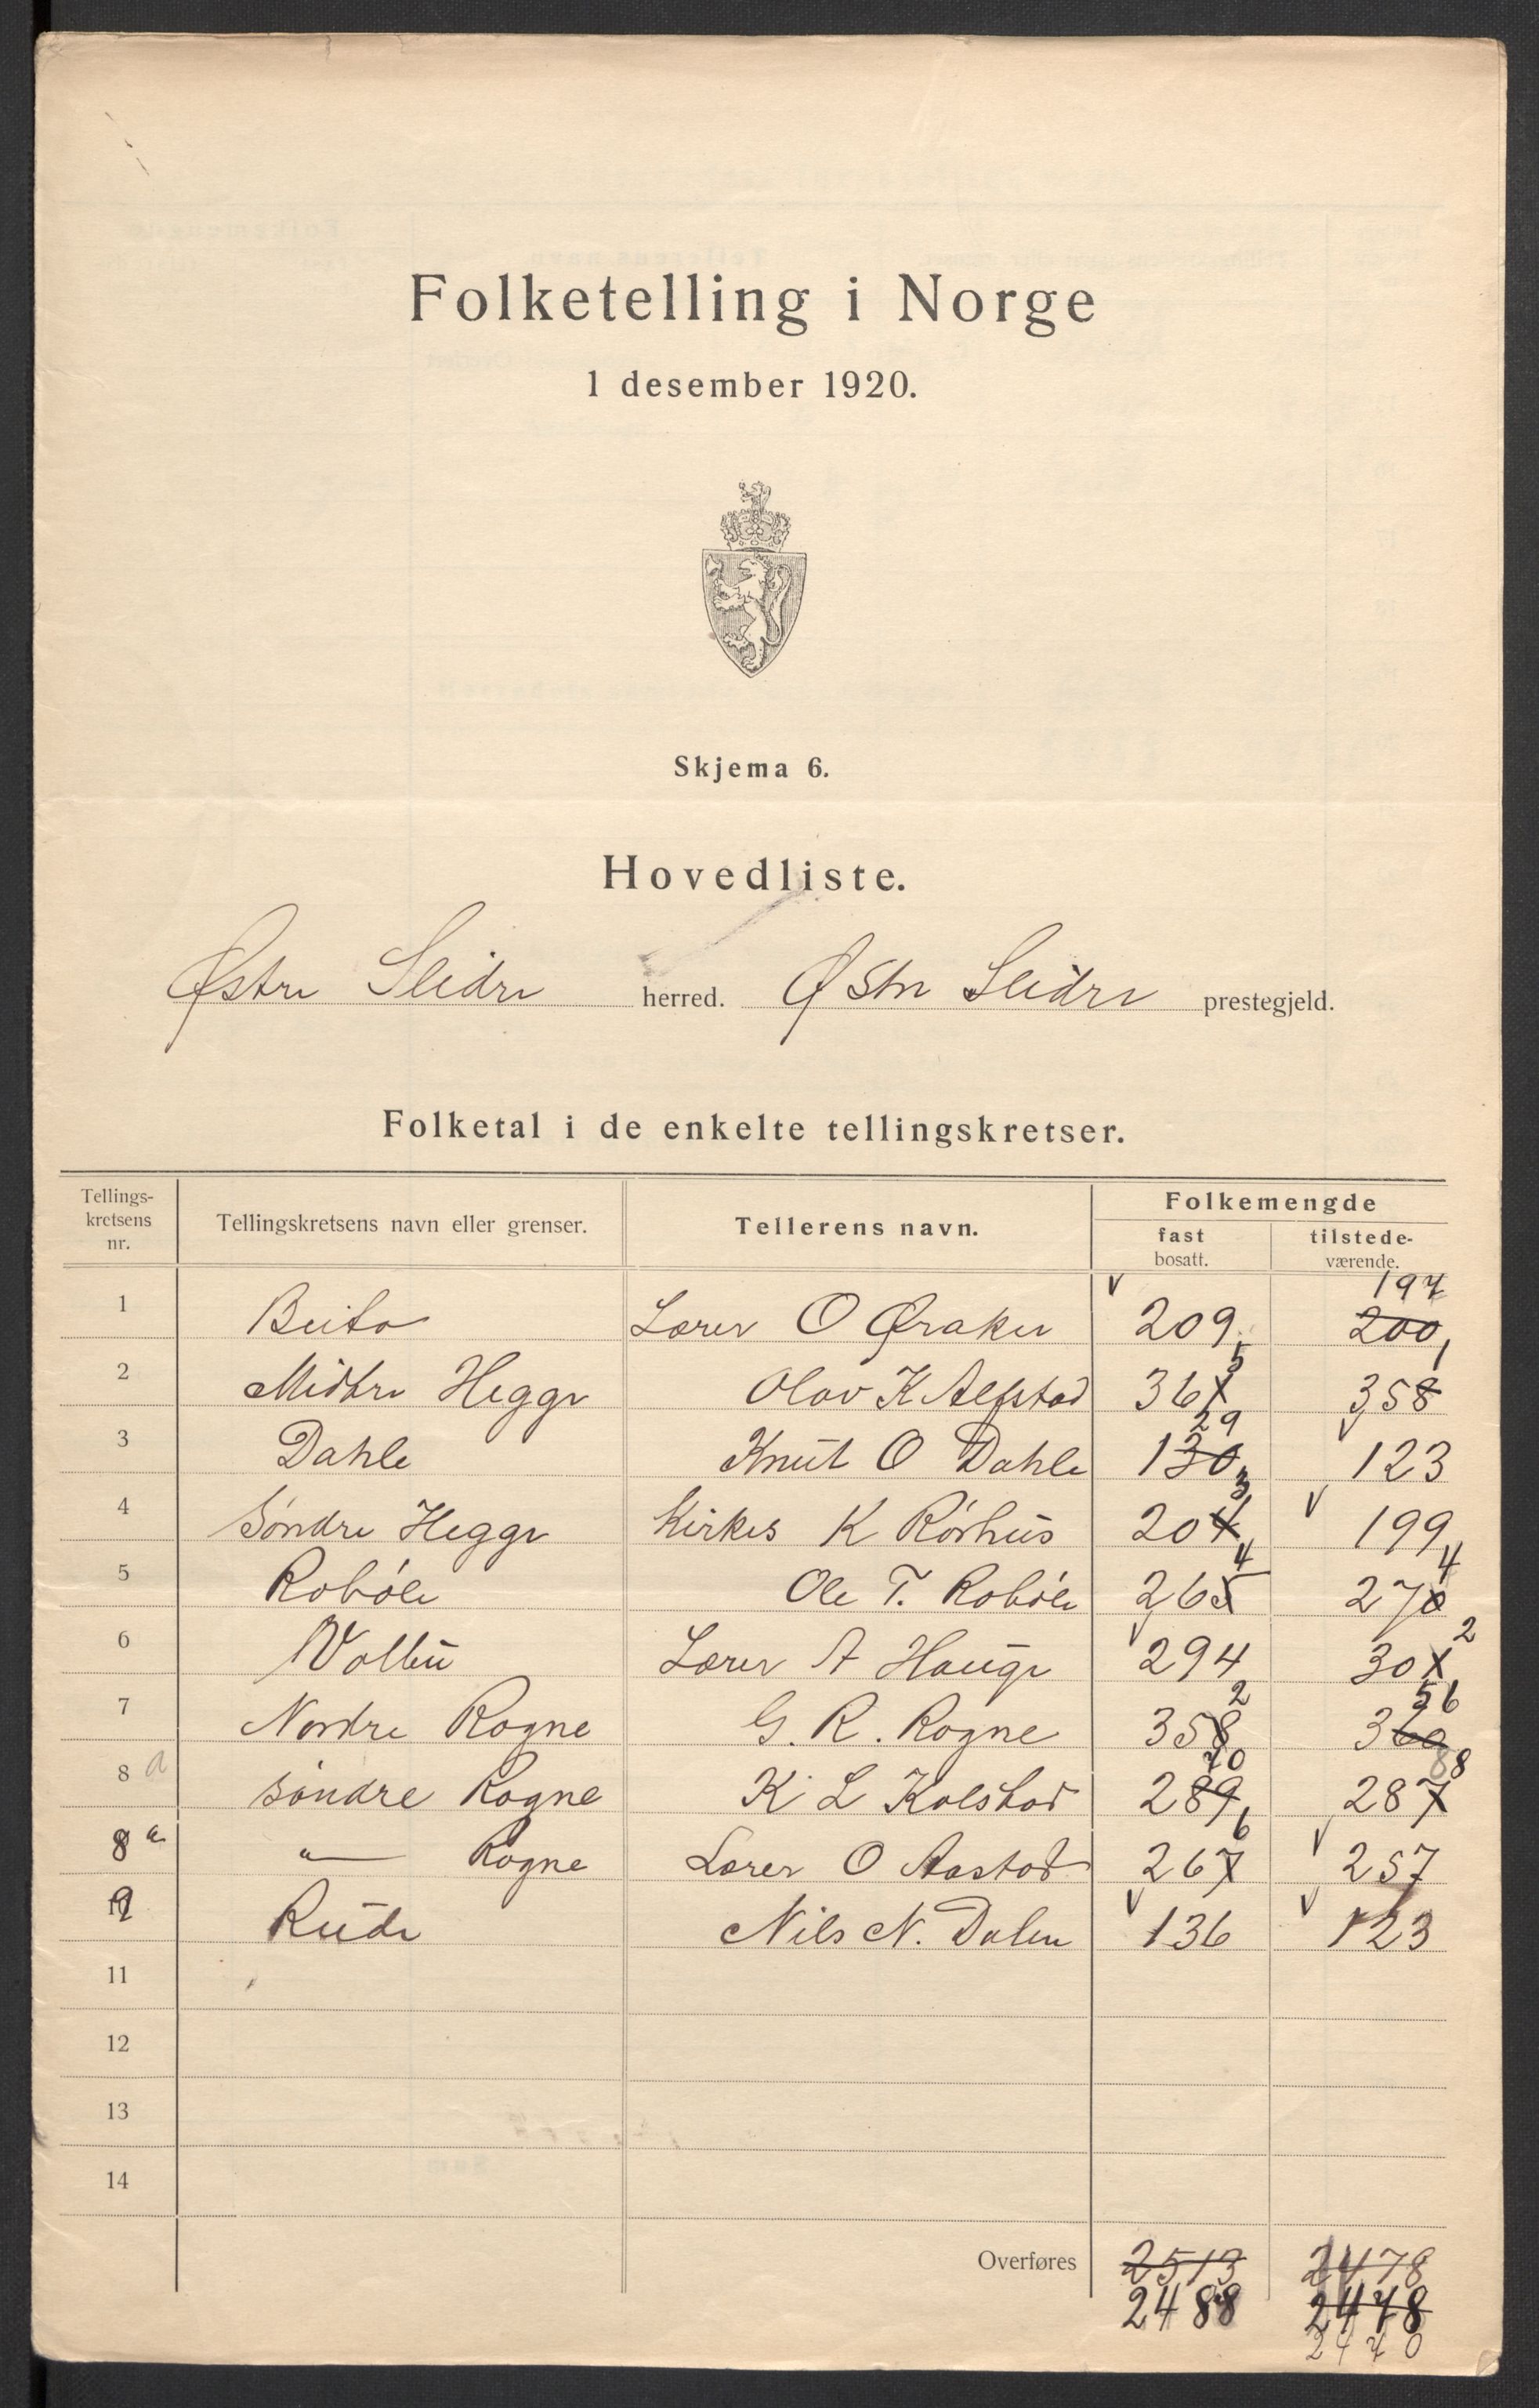 Folketelling i Norge
1 desember 1920.
Skjema 6.
Hovedliste.
Østre Slidre herred. Østre Slidre prestegjeld.
Folketal i de enkelte tellingskretser.
Tellings-kretsens nr. Tellingskretsens navn eller grenser. Tellerens navn. Folkemengde
fast bosatt. tilstede-værende.
197
1 Beito Lærer O Øraker 209 200
5 1
2 Midtre Hegge Olav K Alfstad 36 358
29
3 Dahle Knut O Dahle 130 123
3
4 Søndre Hegge Kirkes K Rørhus 204 199
4 4
5 Robøle Ole T. Robøle 265 270
2
6 Volbu Lærer A Hauge 294 301
2 56
7 Nordre Rogne G. R. Rogne 358 360
70 88
8 a Søndre Rogne K L Kolstad 289 287
6
8 a " Rogne Lærer O Aastad 267 257
9 Rude Nils N. Dalen 136 123
11
12
13
14
Overføres 2513 2478
2488 2478
2470